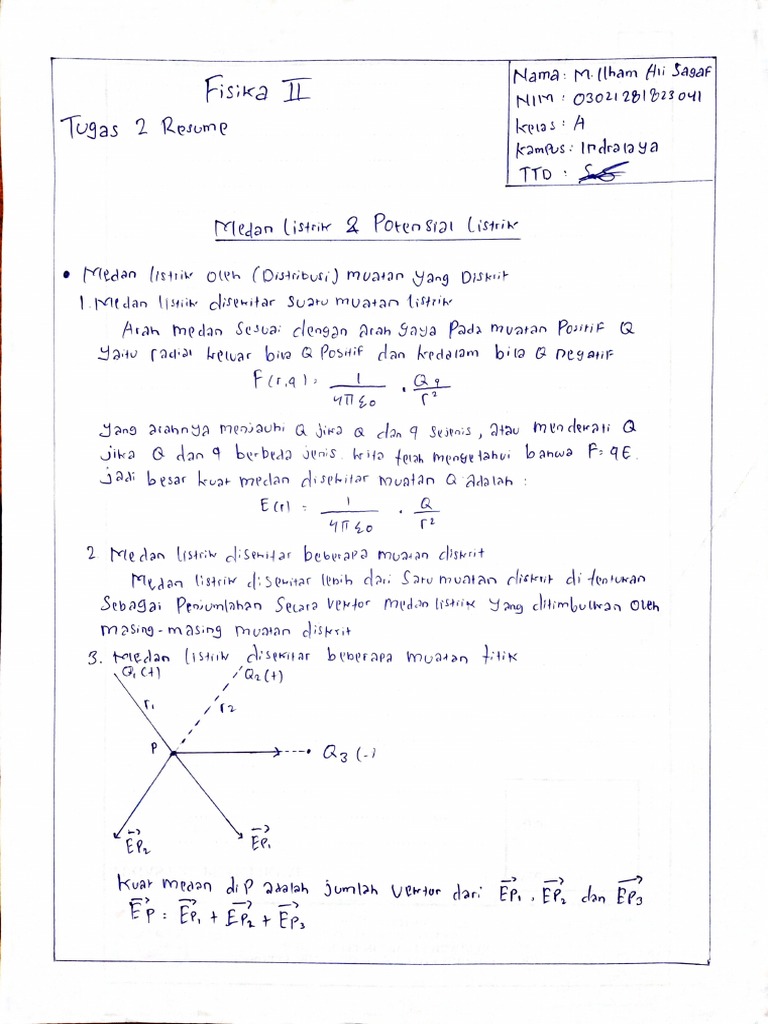 Fisika II
Tugas 2 Resume
Nama : M. Ilham Ali Sagaf
NIM : 03021281823041
Kelas : A
Kampus : Indralaya
TTD :
Medan Listrik & Potensial Listrik
• Medan listrik oleh (Distribusi) muatan yang Diskrit
1. Medan listrik disekitar suatu muatan listrik
Arah medan sesuai dengan arah gaya pada muatan Positif Q
yaitu radial keluar bila Q Positif dan kedalam bila Q negatif
F(r,q) = 1/4πε0 . Qq/r²
yang arahnya menjauhi Q jika Q dan q sejenis, atau mendekati Q
jika Q dan q berbeda jenis. kita telah mengetahui bahwa F = qE.
jadi besar kuat medan disekitar muatan Q adalah :
E(r) = 1/4πε0 . Q/r²
2. Medan listrik disekitar beberapa muatan diskrit
Medan listrik disekitar lebih dari satu muatan diskrit di tentukan
sebagai Penjumlahan secara vektor medan listrik yang ditimbulkan oleh
masing-masing muatan diskrit
3. Medan listrik disekitar beberapa muatan titik
Q1 (+) Q2 (+)
r1 r2
P Q3 (-)
EP2 EP1
Kuat medan di P adalah jumlah vektor dari EP1, EP2 dan EP3
EP = EP1 + EP2 + EP3